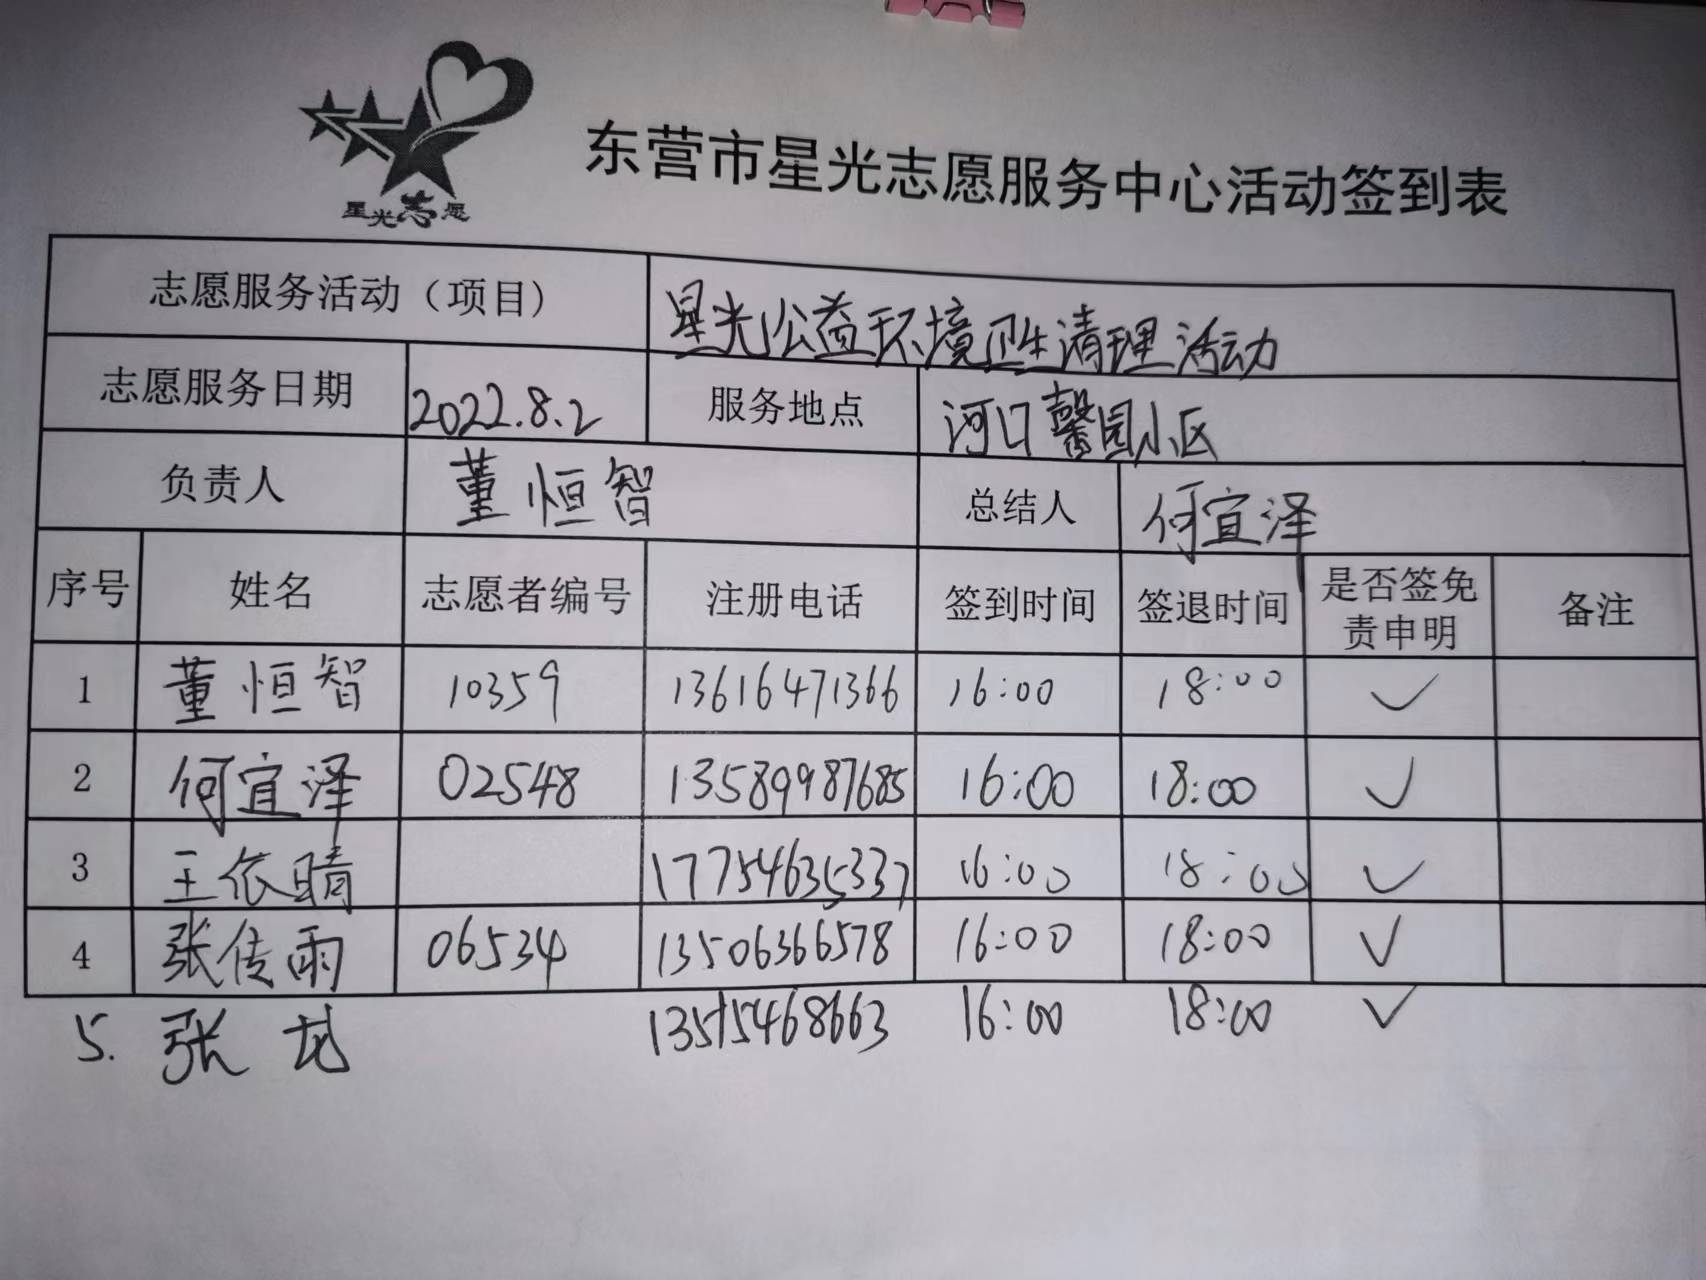 星光志愿
东营市星光志愿服务中心活动签到表
志愿服务活动（项目） 星光公益环境卫生清理活动
志愿服务日期 2022.8.2 服务地点 河口馨园小区
负责人 董恒智 总结人 何宜泽
序号 姓名 志愿者编号 注册电话 签到时间 签退时间 是否签免责申明 备注
1 董恒智 10359 13616471366 16:00 18:00 ✓
2 何宜泽 02548 13589987685 16:00 18:00 ✓
3 王依晴 17754635337 16:00 18:00 ✓
4 张传雨 06534 13506366578 16:00 18:00 ✓
5. 张龙 13515468663 16:00 18:00 ✓